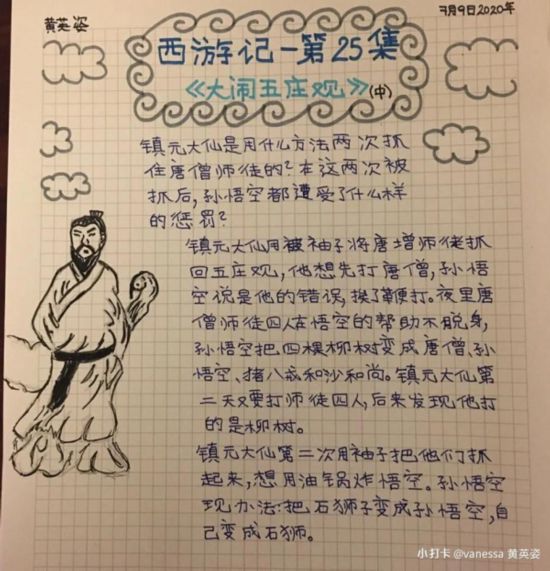 黄英姿
7月9日2020年
西游记-第25集
《大闹五庄观》(中)
镇元大仙是用什么方法两次抓
住唐僧师徒的?在这两次被
抓后,孙悟空都遭受了什么样
的惩罚?
镇元大仙用被袖子将唐增师徒抓
回五庄观,他想先打唐僧,孙悟
空说是他的错误,换了鞭打。夜里唐
僧师徒四人在悟空的帮助不脱身,
孙悟空把四棵柳树变成唐僧、孙
悟空、猪八戒和沙和尚。镇元大仙第
二天又要打师徒四人,后来发现他打
的是柳树。
镇元大仙第二次用袖子把他们抓
起来,想用油锅炸悟空。孙悟空
现办法:把石狮子变成孙悟空,自
己变成石狮。
小打卡 @vanessa 黄英姿